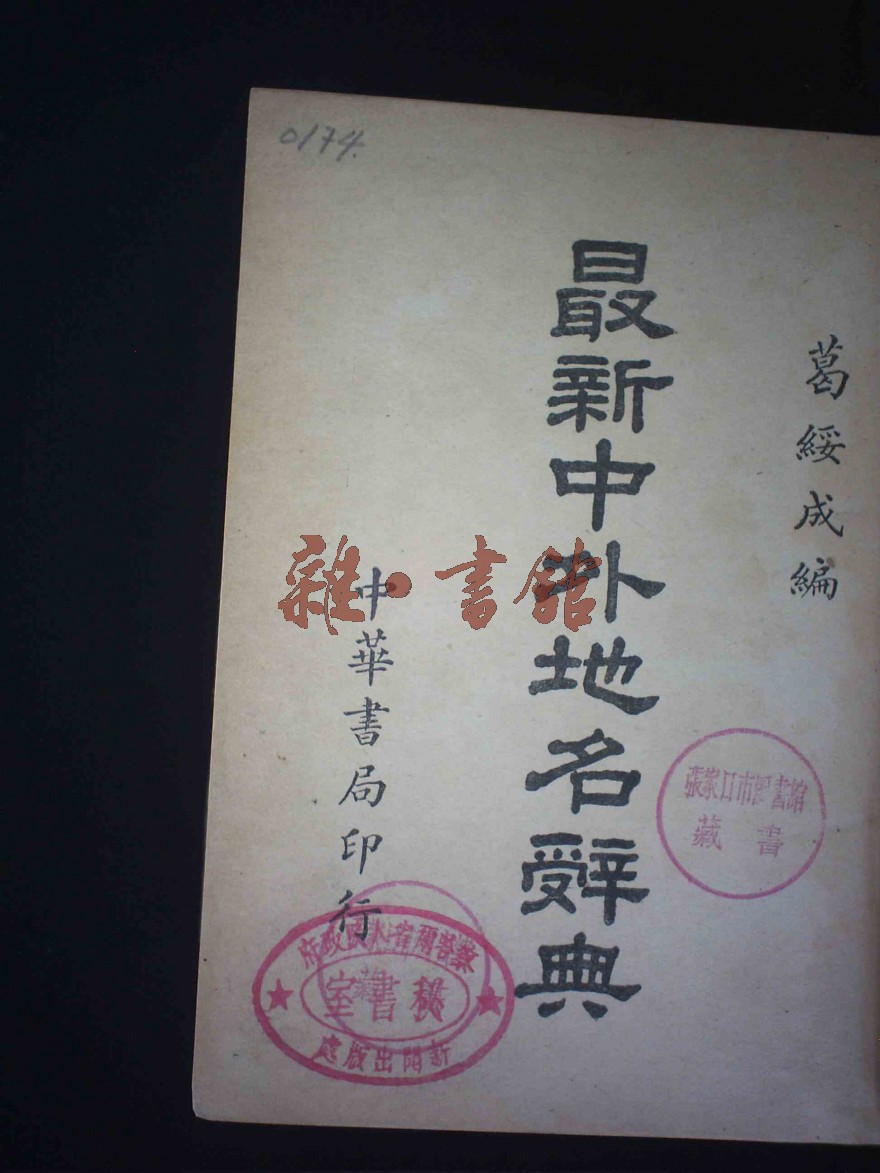 0174.
葛綏成編
最新中外地名辭典
中華書局印行
雜·書館
張家口市圖書館
藏書
察哈爾省人民政府
秘書室
新聞出版處